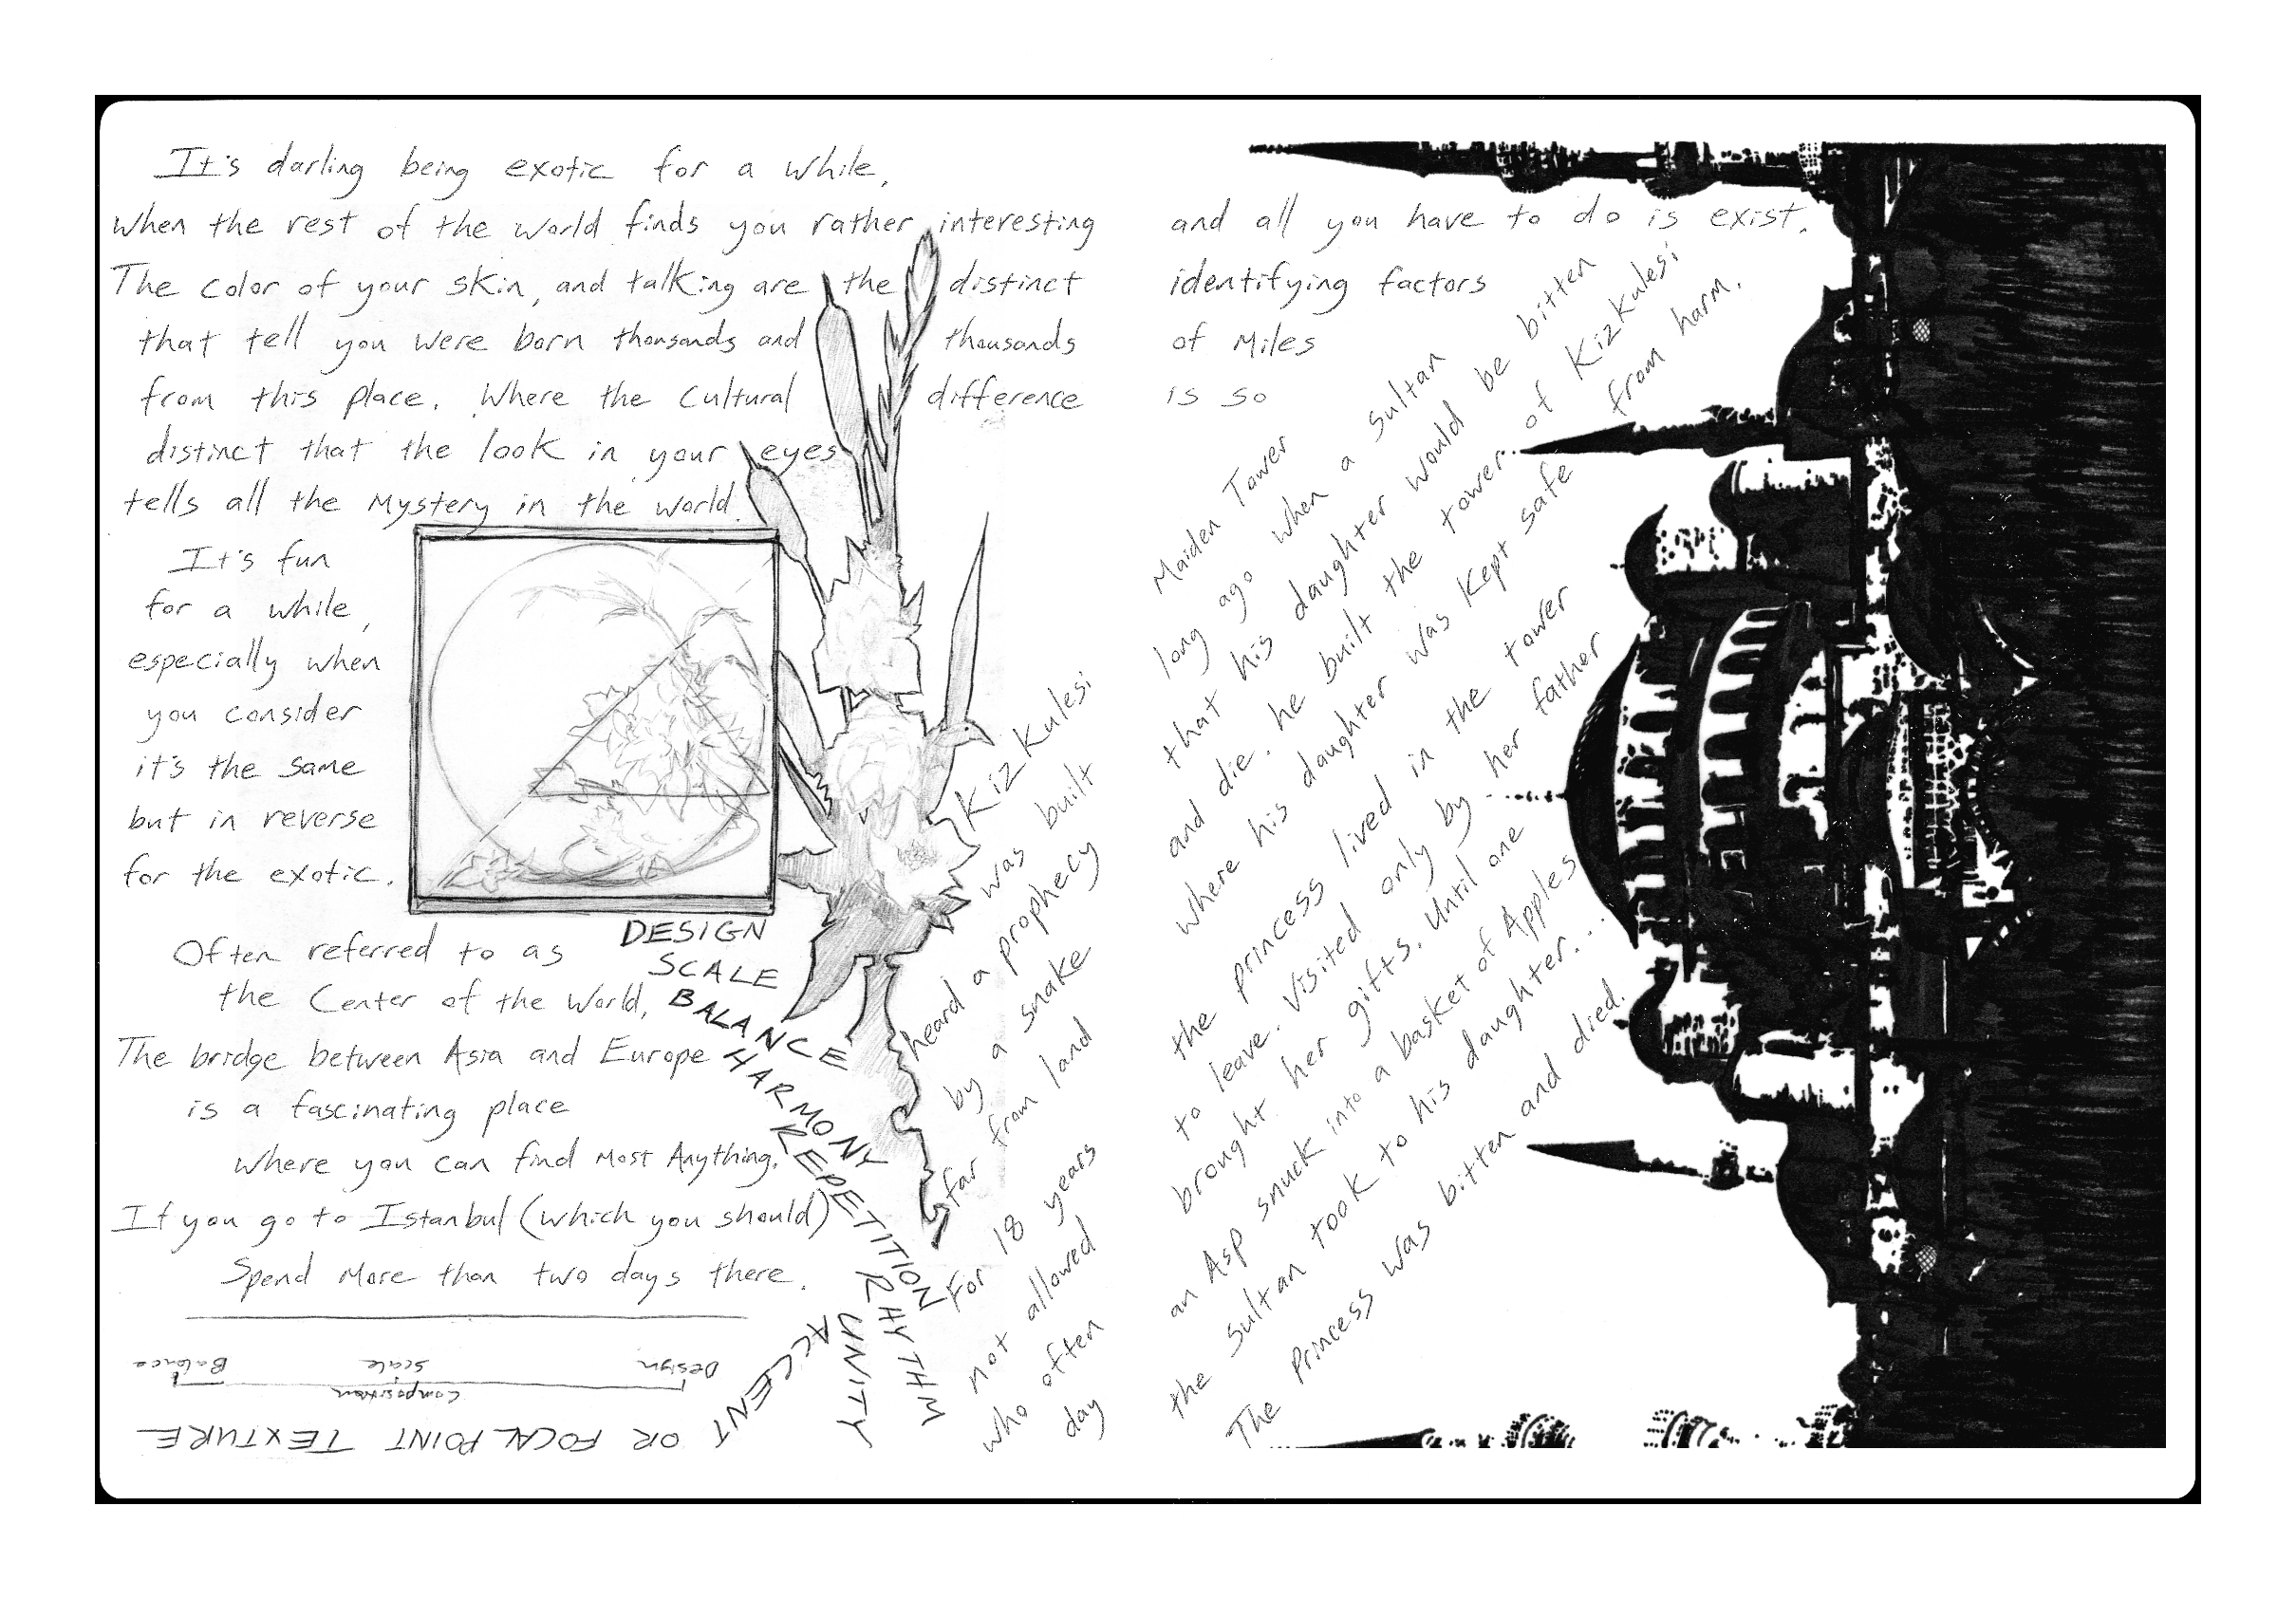 It's darling being exotic for a while,
When the rest of the world finds you rather interesting and all you have to do is exist.
The color of your skin, and talking are the distinct identifying factors
that tell you were born thousands and thousands of Miles
from this place. Where the Cultural difference is so
distinct that the look in your eyes
tells all the Mystery in the world.
It's fun
for a while,
especially when
you consider
it's the same
but in reverse
for the exotic.
Often referred to as
the Center of the World,
The bridge between Asia and Europe
is a fascinating place
Where you can find Most Anything.
If you go to Istanbul (which you should)
Spend More than two days there.
DESIGN
SCALE
BALANCE
HARMONY
REPETITION
RHYTHM
UNITY
ACCENT
OR FOCAL POINT TEXTURE
Composition
Design Scale Balance
KizKulesi Maiden Tower
was built long ago when a Sultan
heard a prophecy that his daughter would be bitten
by a snake and die. he built the tower of KizKulesi
far from land where his daughter was Kept safe from harm.
For 18 years the princess lived in the tower
not allowed to leave. Visited only by her father
who often brought her gifts. Until one
day an Asp snuck into a basket of Apples
the Sultan took to his daughter...
The Princess was bitten and died.